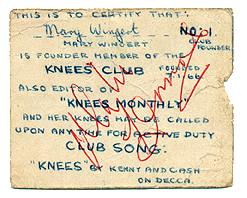 THIS IS TO CERTIFY THAT:
Mary Wingert NO. 01
MARY WINGERT CLUB FOUNDER
IS FOUNDER MEMBER OF THE
KNEES' CLUB FOUNDED
ALSO EDITOR OF 7.1.66.
"KNEES MONTHLY"
AND HER KNEES MAY BE CALLED
UPON ANYTIME FOR ACTIVE DUTY
CLUB SONG:
"KNEES" BY KENNY AND CASH
ON DECCA.